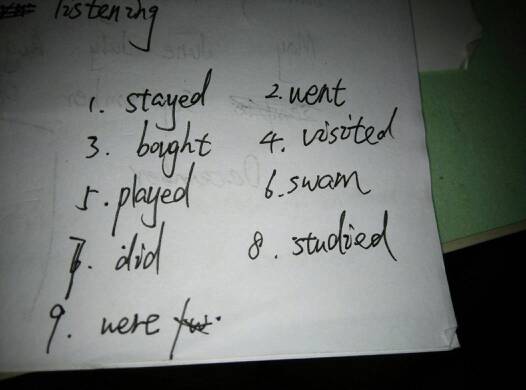 listening
1. stayed 2. went
3. bought 4. visited
5. played 6. swam
7. did 8. studied
9. were